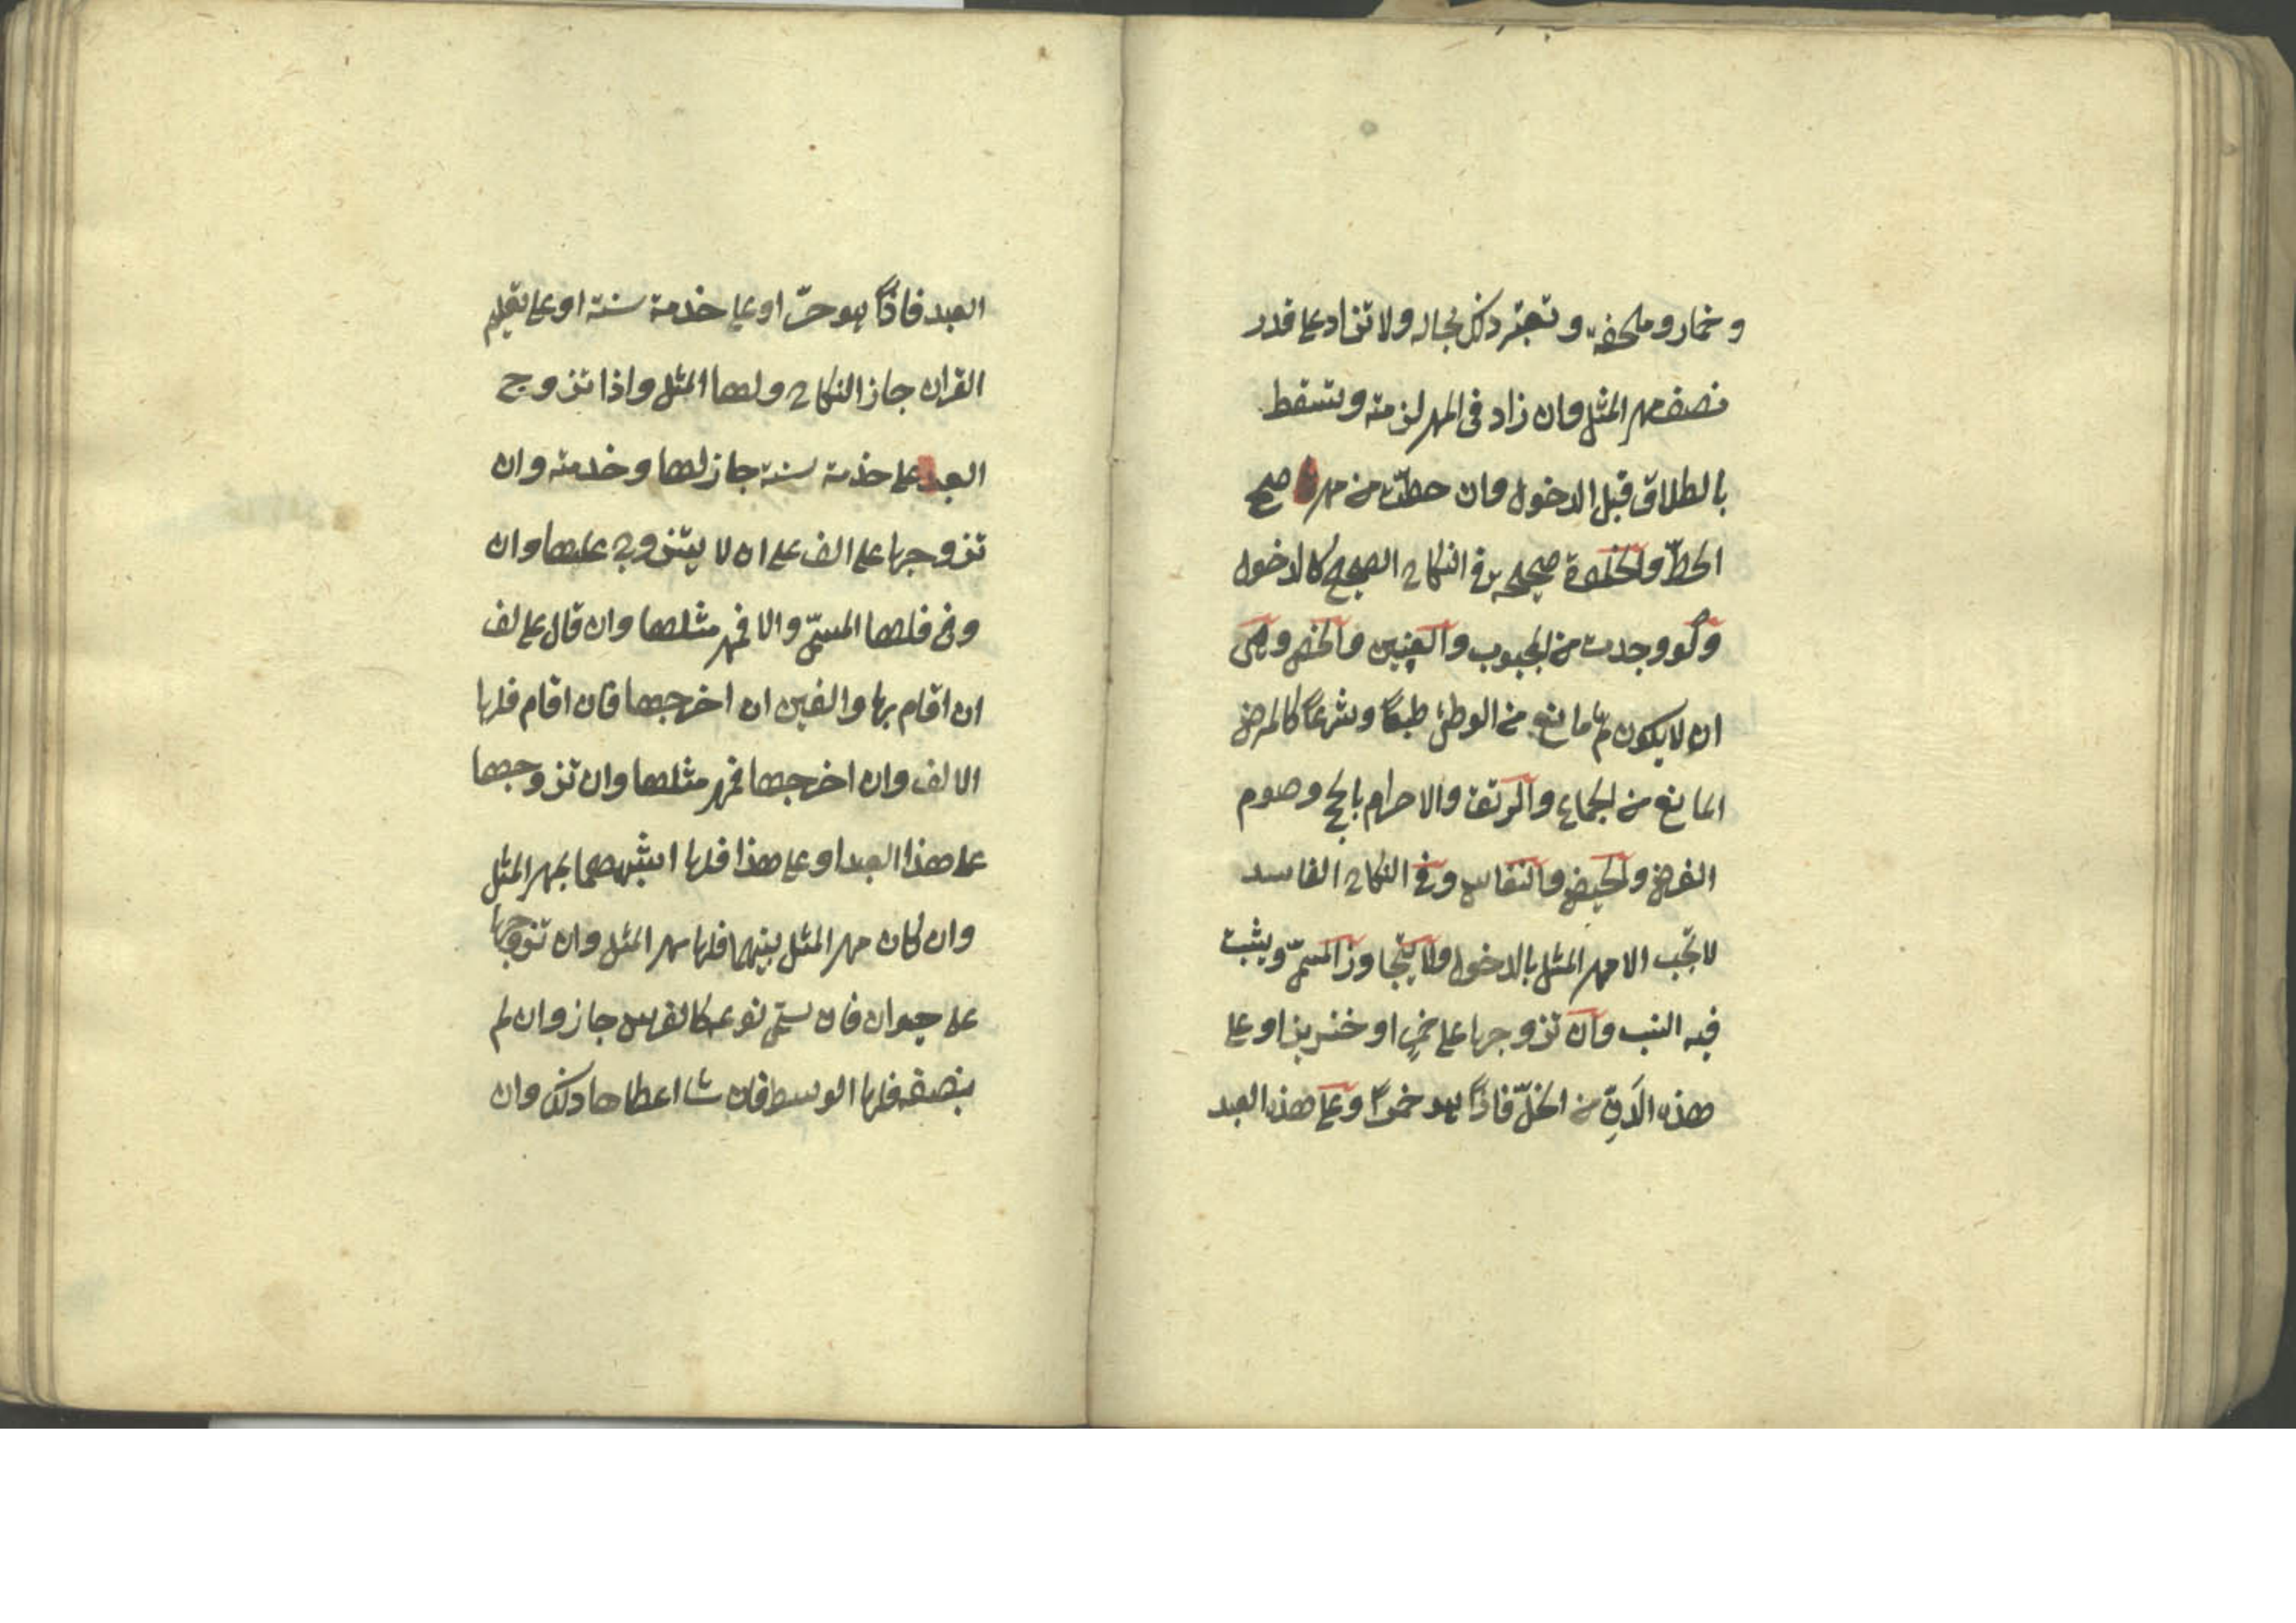 وخمار وملحفة وتعتبر ذلك بحاله ولا تزاد على قدر
نصف مهر المثل وان زاد فى المهر لزمته وتسقط
بالطلاق قبل الدخول وان حطت من مهرها صح
الحط والخلوة صحيحة فى النكاح الصحيح كالدخول
ولو وجدت من المجبوب والعنين والخصى وهى
ان لا يكون ثم مانع من الوطئ طبعا وشرعا كالمرض
المانع من الجماع والرتق والاحرام بالحج وصوم
الفرض والحيض والنفاس وفى النكاح الفاسد
لا تجب الا مهر المثل بالدخول ولا يتجاوز المسمى ويثبت
فيه النسب وان تزوجها على خمر او خنزير او على
هذه الدن من الخل فاذا هو خمرا وعلى هذه العبد
العبد فاذا هو حر او على خدمة سنة او على تعليم
القران جاز النكاح ولها المثل واذا تزوج
العبد على خدمة سنة جاز لها وخدمته وان
تزوجها على الف على ان لا يتزوج عليها وان
وفى فلها المسمى والا فمهر مثلها وان قال على لف
ان اقام بها والفين ان اخرجها فان اقام فلها
الالف وان اخرجها فمهر مثلها وان تزوجها
على هذا العبد او على هذا فلها اشبههما بمهر المثل
وان كان مهر المثل بينهما فلها مهر المثل وان تزوجها
على حيوان فان سمى نوعه كالفرس جاز وان لم
يصفه فلها الوسط فان شا اعطاها ذلك وان